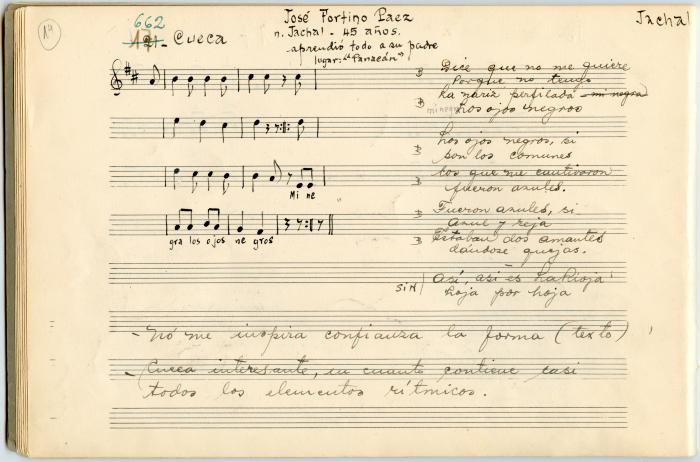 19
662
Cueca
José Fortino Paez
n. Jachal - 45 años.
aprendió todo a su padre
lugar: "Panacán"
Jachal
Dice que no me quiere
Porque no tengo
La nariz perfilada mi negra
mi negra Los ojos negros
Los ojos negros, si
son los comunes
los que me cautivaron
fueron azules.
Fueron azules, si
azul y reja
Estaban dos amantes
dandose quejas.
SIH Así, así es La Rioja
hoja por hoja
Mi ne
gra los ojos ne gros
- No me inspira confianza la forma (texto)
- Cueca interesante, en cuanto contiene casi
todos los elementos rítmicos.